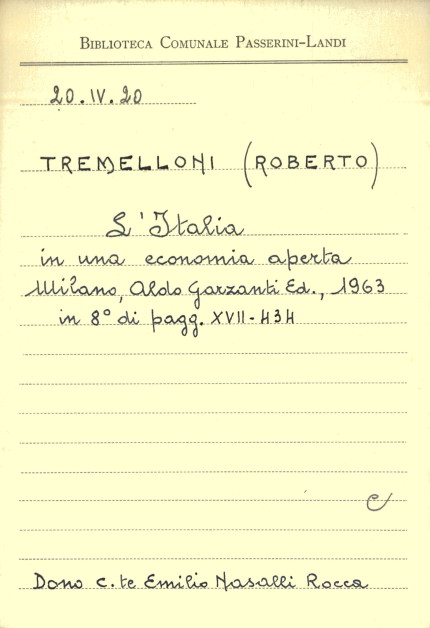 BIBLIOTECA COMUNALE PASSERINI-LANDI
20.IV.20
TREMELLONI (ROBERTO)
L'Italia
in una economia aperta
Milano, Aldo Garzanti Ed., 1963
in 8° di pagg. XVII-434
e
Dono c.te Emilio Nasalli Rocca